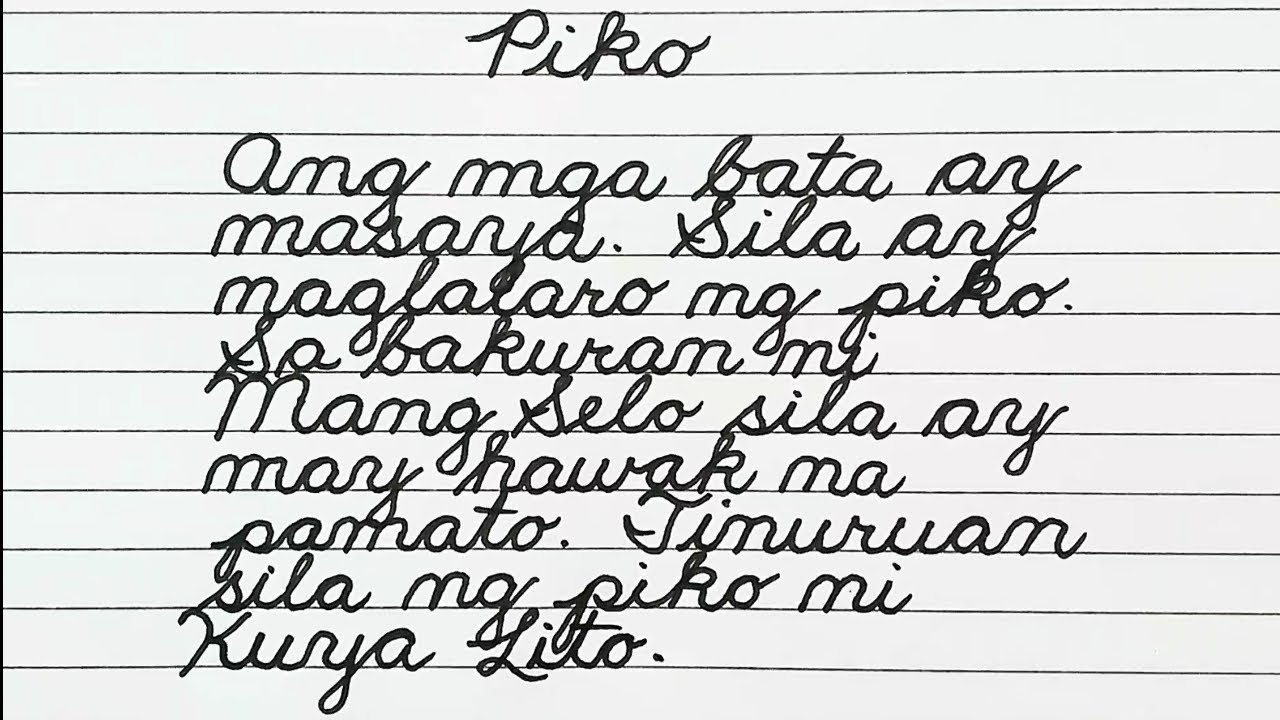 Piko
Ang mga bata ay
masaya. Sila ay
naglalaro ng piko.
Sa bakuran ni
Mang Selo sila ay
may hawak na
pamato. Tinuruan
sila ng piko ni
Kuya Lito.